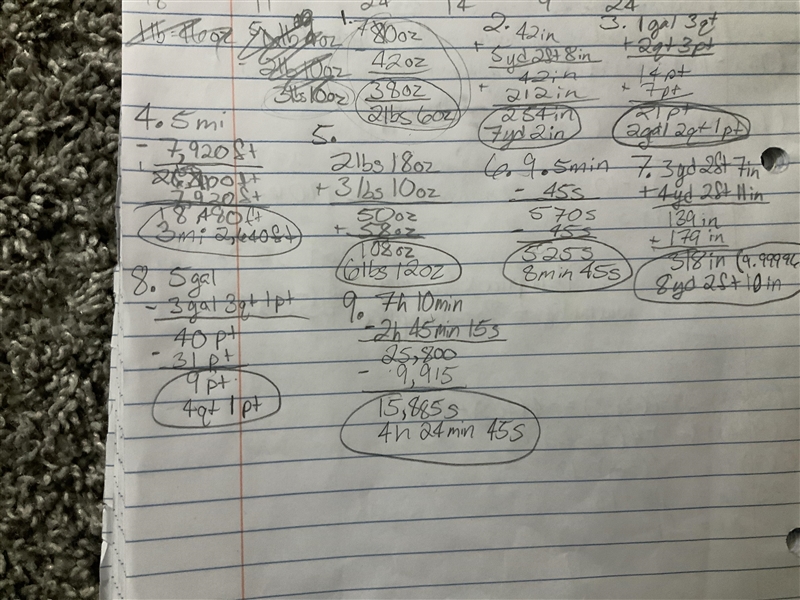 18 11 24 14 9 24
1.
80oz
- 42oz
38oz
2lbs 6oz
2. 42in
+ 5yd 2ft 8in
42in
+ 212in
254in
7yd 2in
3. 1gal 3qt
+ 2qt 3pt
14pt
+ 7pt
21pt
2gal 2qt 1pt
4. 5mi
- 7,920ft
7,920ft
18,480ft
3mi 2,640ft
5.
2lbs 18oz
+ 3lbs 10oz
50oz
+ 58oz
108oz
6lbs 12oz
6. 9.5min
- 45s
570s
- 45s
525s
8min 45s
7. 3yd 2ft 7in
+ 4yd 2ft 11in
139in
+ 179in
318in
8yd 2ft 10in
8. 5gal
- 3gal 3qt 1pt
40pt
- 31pt
9pt
4qt 1pt
9. 7h 10min
- 2h 45min 15s
25,800
- 9,915
15,885s
4h 24min 45s